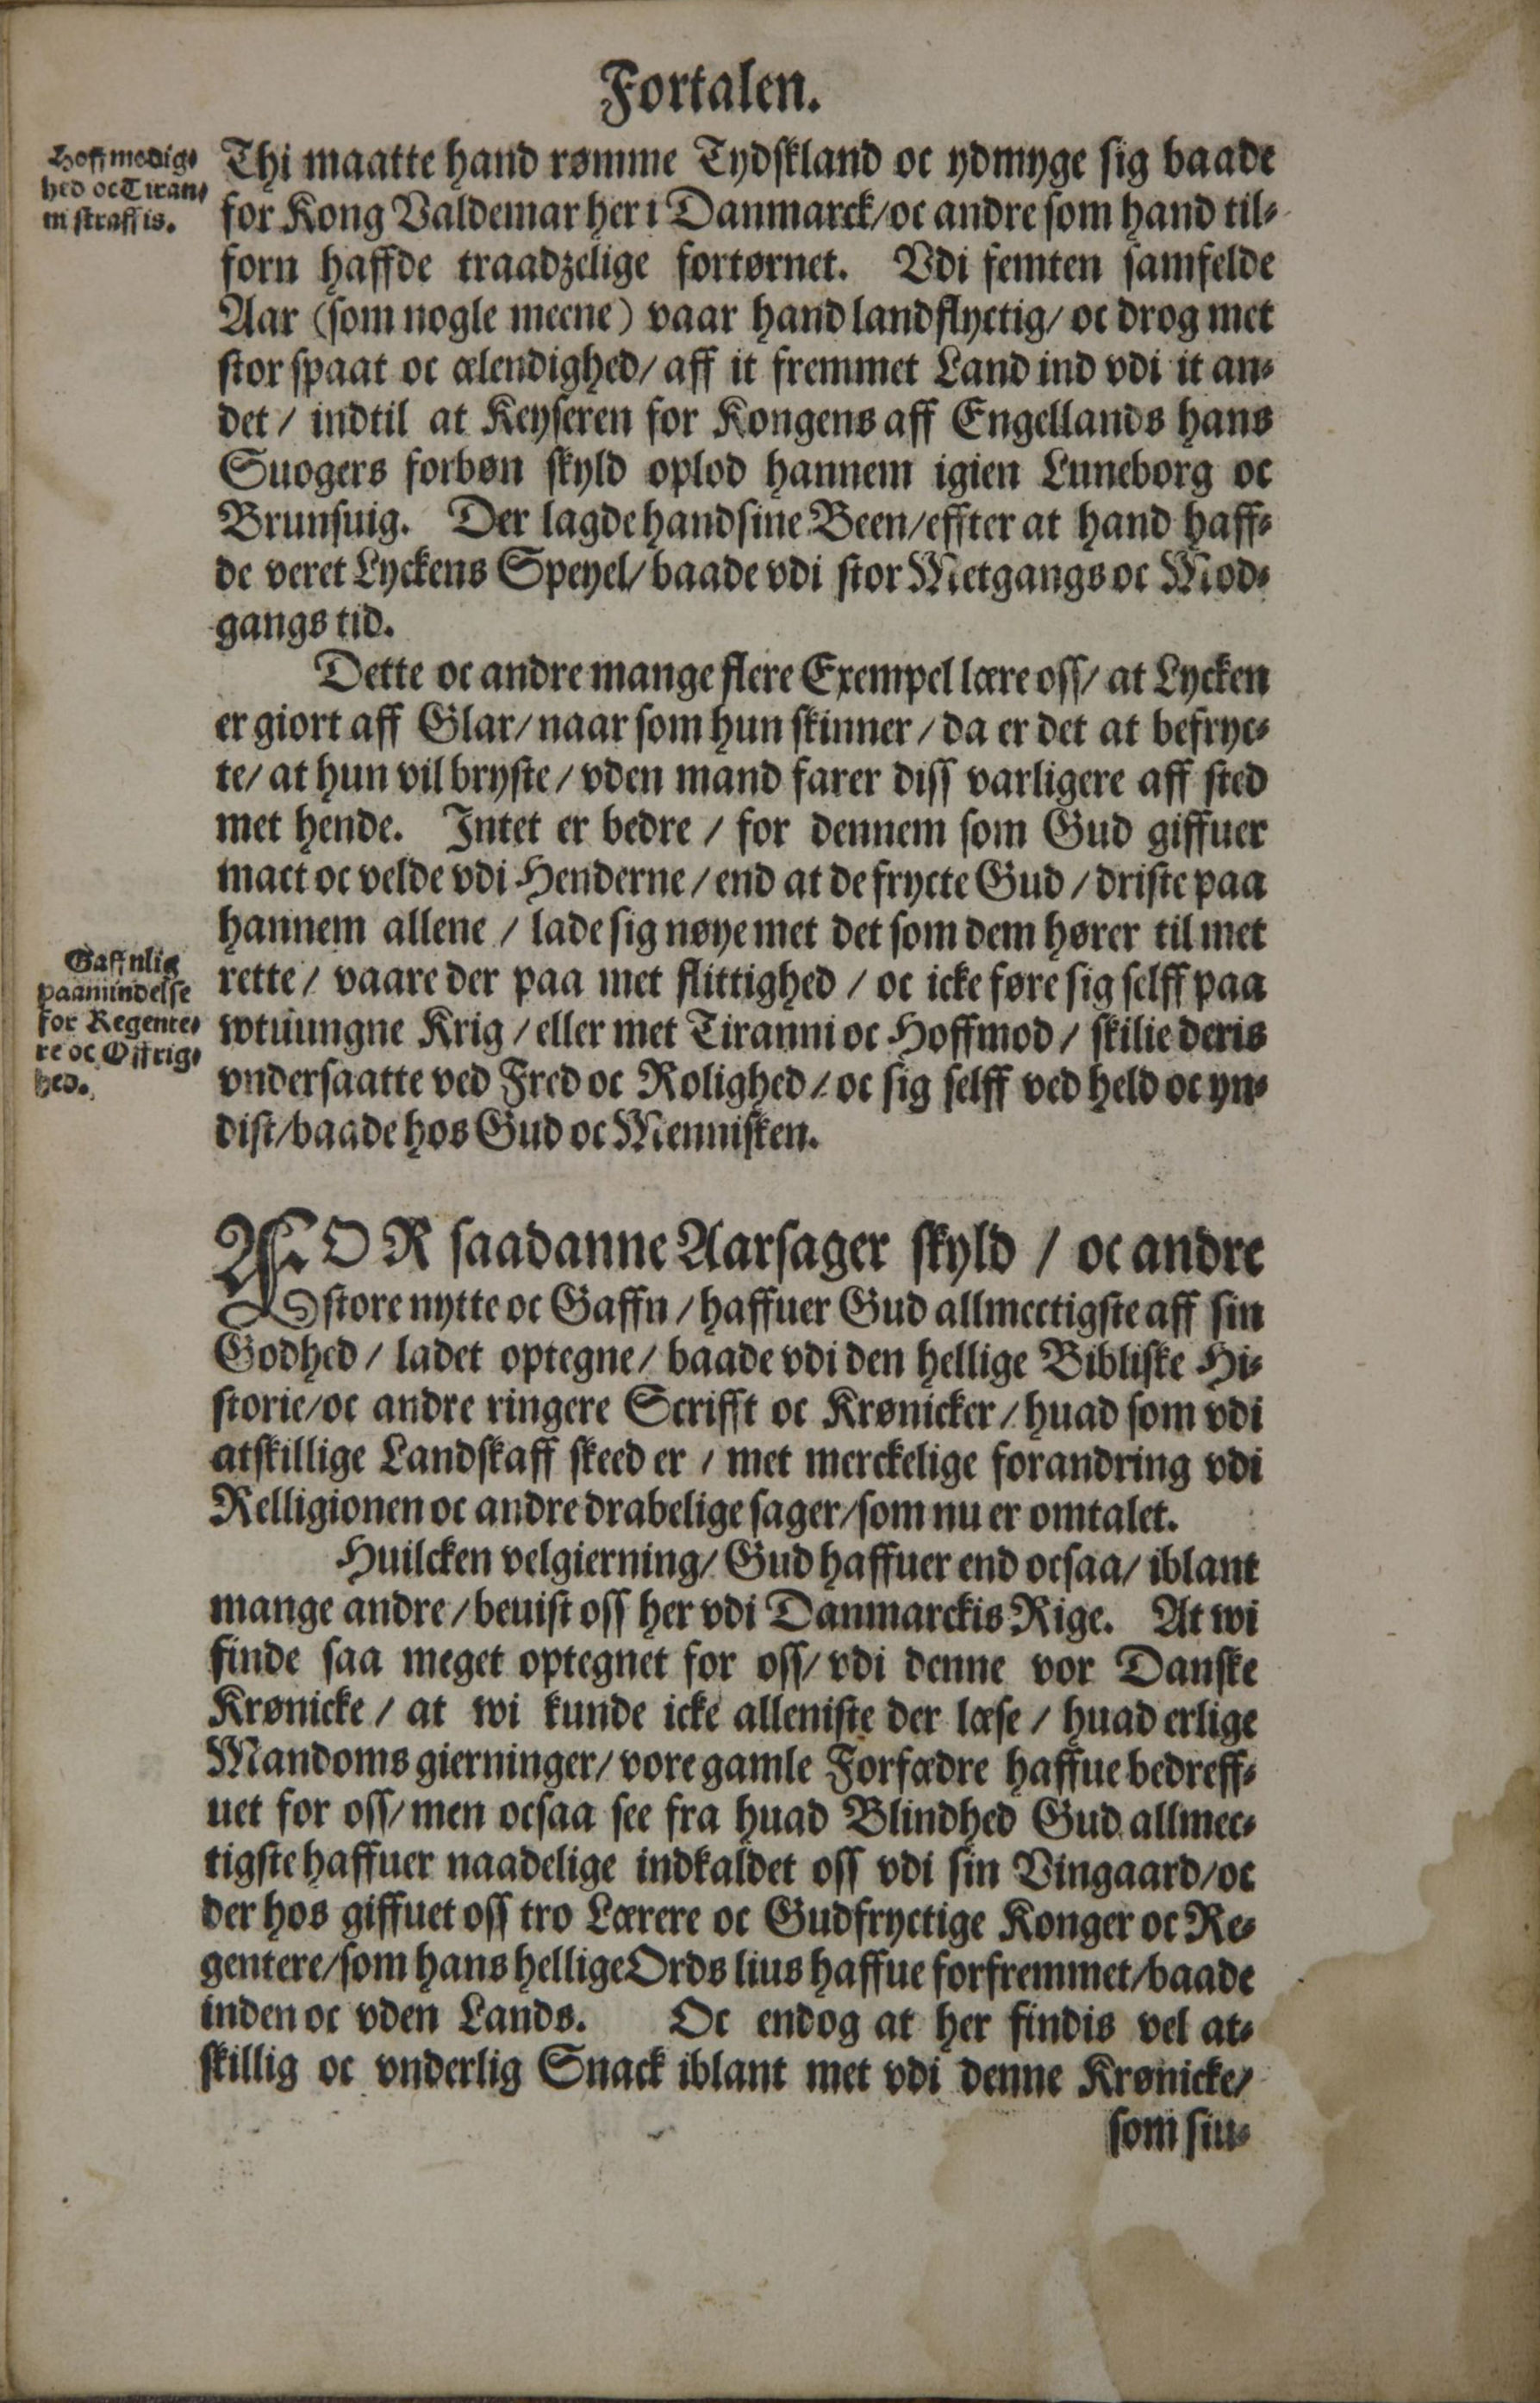 Fortalen.
Hoffmodig⸗
hed oc Tiran⸗
ni straffis.
Thi maatte hand rømme Tydskland oc ydmyge sig baade
for Kong Valdemar her i Danmarck/ oc andre som hand til⸗
forn haffde traadzelige fortørnet. Vdi femten samfelde
Aar (som nogle meene) vaar hand landflyctig/ oc drog met
stor spaat oc ælendighed/ aff it fremmet Land ind vdi it an⸗
det / indtil at Keyseren for Kongens aff Engellands hans
Suogers forbøn skyld oplod hannem igien Luneborg oc
Brunsuig. Der lagde hand sine Been/ effter at hand haff⸗
de veret Lyckens Speyel/ baade vdi stor Metgangs oc Mod⸗
gangs tid.
Dette oc andre mange flere Exempel lære oss/ at Lycken
er giort aff Glar/ naar som hun skinner / da er det at befryc⸗
te/ at hun vil bryste / vden mand farer diss varligere aff sted
met hende. Intet er bedre / for dennem som Gud giffuer
mact oc velde vdi Henderne / end at de frycte Gud / driste paa
hannem allene / lade sig nøye met det som dem hører til met
Gaffnlig
paamindelse
for Regente⸗
re oc Øffrig⸗
hed.
rette / vaare der paa met flittighed / oc icke føre sig selff paa
wtuungne Krig / eller met Tiranni oc Hoffmod / skilie deris
vndersaatte ved Fred oc Rolighed / oc sig selff ved held oc yn⸗
dist/ baade hos Gud oc Mennisken.
FOR saadanne Aarsager skyld / oc andre
store nytte oc Gaffn / haffuer Gud allmectigste aff sin
Godhed / ladet optegne / baade vdi den hellige Bibliske Hi⸗
storie/ oc andre ringere Scrifft oc Krønicker / huad som vdi
atskillige Landskaff skeed er / met merckelige forandring vdi
Relligionen oc andre drabelige sager/ som nu er omtalet.
Huilcken velgierning/ Gud haffuer end ocsaa/ iblant
mange andre / beuist oss her vdi Danmarckis Rige. At wi
finde saa meget optegnet for oss/ vdi denne vor Danske
Krønicke / at wi kunde icke alleniste der læse / huad erlige
Mandoms gierninger/ vore gamle Forfædre haffue bedreff⸗
uet for oss/ men ocsaa see fra huad Blindhed Gud allmec⸗
tigste haffuer naadelige indkaldet oss vdi sin Vingaard/ oc
der hos giffuet oss tro Lærere oc Gudfryctige Konger oc Re⸗
gentere/ som hans hellige Ords lius haffue forfremmet/ baade
inden oc vden Lands. Oc endog at her findis vel at⸗
skillig oc vnderlig Snack iblant met vdi denne Krønicke/
som siu⸗